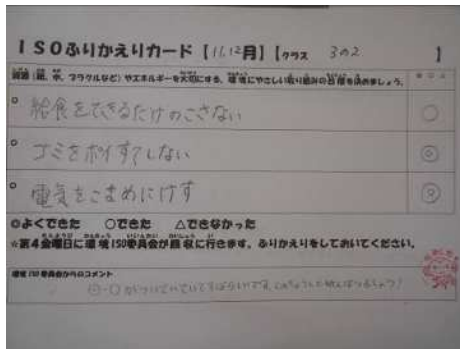 ISOふりかえりカード【11,12月】【クラス 3の2 】
資源(紙、水、プラグルなど)やエネルギーを大切にする、環境にやさしい取り組みの目標を決めましょう。
◦ 給食をできるだけのこさない ○
◦ ゴミをポイすてしない ◎
◦ 電気をこまめにけす ◎
◎よくできた ○できた △できなかった
☆第4金曜日に環境ISO委員会が回収に行きます。ふりかえりをしておいてください。
環境ISO委員会からのコメント
◎・○がついていてすばらしいです。